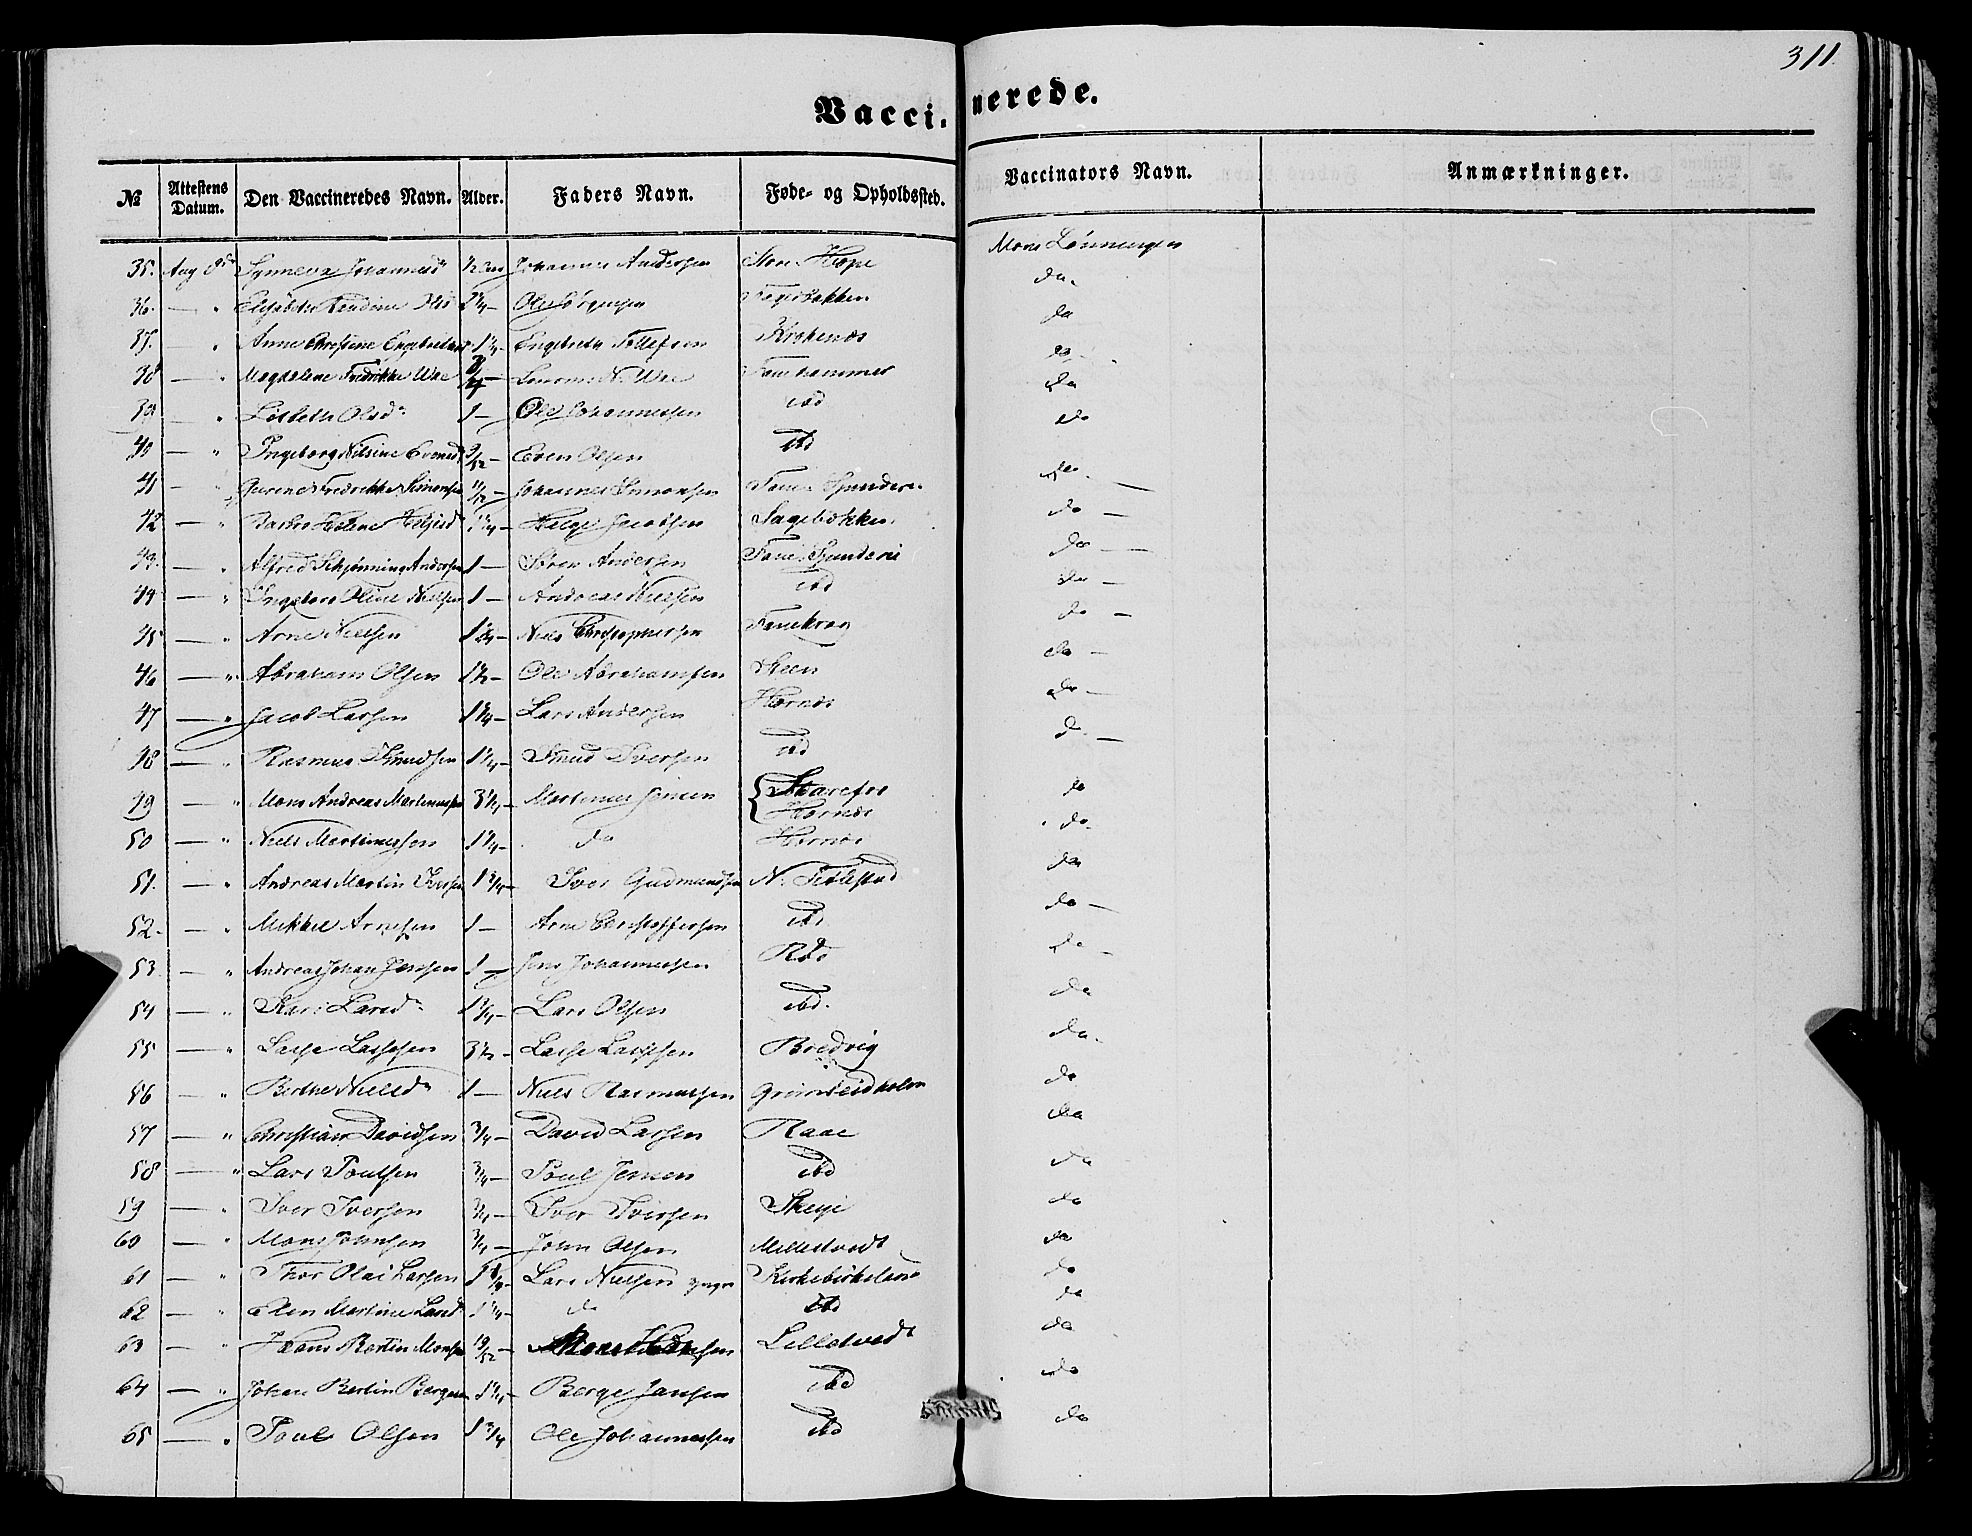 311.
Vaccinerede.
№ Attestens Datum. Den Vaccineredes Navn. Alder. Faders Navn. Føde- og Opholdssted. Vaccinators Navn. Anmærkninger.
35. Aug 8de Synneva Johannesd. Johannes Andersen Store Hope Mons Lønningen
36. — " Olsd Ole Jørgensen Fagerbakken do.
37. — " Anne Christine Engebretsd 1 1/4 - Engebreth Tollefsen Krokenæs do
38 — " Magdalene Fredrikke Wae Wae Fanehammer do
39 — " Lisbeth Olsd 1 — Ole Johannessen ibd do
40 — " Ingeborg Nilsine Evensd 9/52 — Even Olsen ibd do
41 — " Fredrikke Simonsen 11/12 — Johannes Simonsen Fane Spinderi do —
42 — " Helene Helgesd 1 1/4 — Helge Jacobsen Sagebakken do —
43. — " Alfred Schjønning Andersen 1 — Søren Andersen Fane Spinderie do —
44 — " Ingeborg Oline Nielsen 1 — Andreas Nielsen ibd do —
45 — " Arne Nielsen Niels Christophersen Fanekrog do —
46 — " Abraham Olsen 1 1/2 — Ole Abrahamsen Steen do —
47 — " Jacob Larsen 1 1/4 — Lars Andersen Hornæs do —
48 — " Rasmus Knudsen 1 1/4 — Knud Iversen ibd do —
49 — " Mons Andreas Martinussen 3 1/2 — Martinus Jensen { Skarefos Hornæs do
50 — " Niels Martinussen 1 1/4 — do Hornæs do
51. — " Andreas Martin Iversen 1 3/4 — Iver Gudmundsen N. Titlestad do
52. — " Mikkel Arnesen 1 — Arne Christoffersen ibd do —
53 — " Andreas Johan Jensen 1 — Jens Johannessen Rød do —
54 — " Kari Larsd 1 1/4 — Lars Olsen ibd. do
55 — " Lasse Lassesen 3 1/2 — Lasse Lassesen Bredvig do.
56 — " Berthe Nielsd 1 — Niels Rasmussen Grimseidholm do
57 — " Christian Davidsen 3/4 — David Larsen Raae do
58 — " Lars Poulsen 3/4 — Poul Jensen ibd do
59 — " Iver Iversen 3/4 — Iver Iversen Skeije do
60 — " Mons Johnsen 3/4 — John Olsen Mildetvedt do
61 — " Thor Olai Larsen Lars Nielsen Kirkebirkeland do
62 — " Elen Martine Larsd 1 1/4 — do ibd do
63 — " Hans Bertin Monsen 19/52 — Mons Hansen Lilletvedt do
64 — " Johan Bertin Bergesen 1 1/4 — Berge Jansen ibd do
65 — " Poul Olsen 1 3/4 Ole Johannessen ibd do